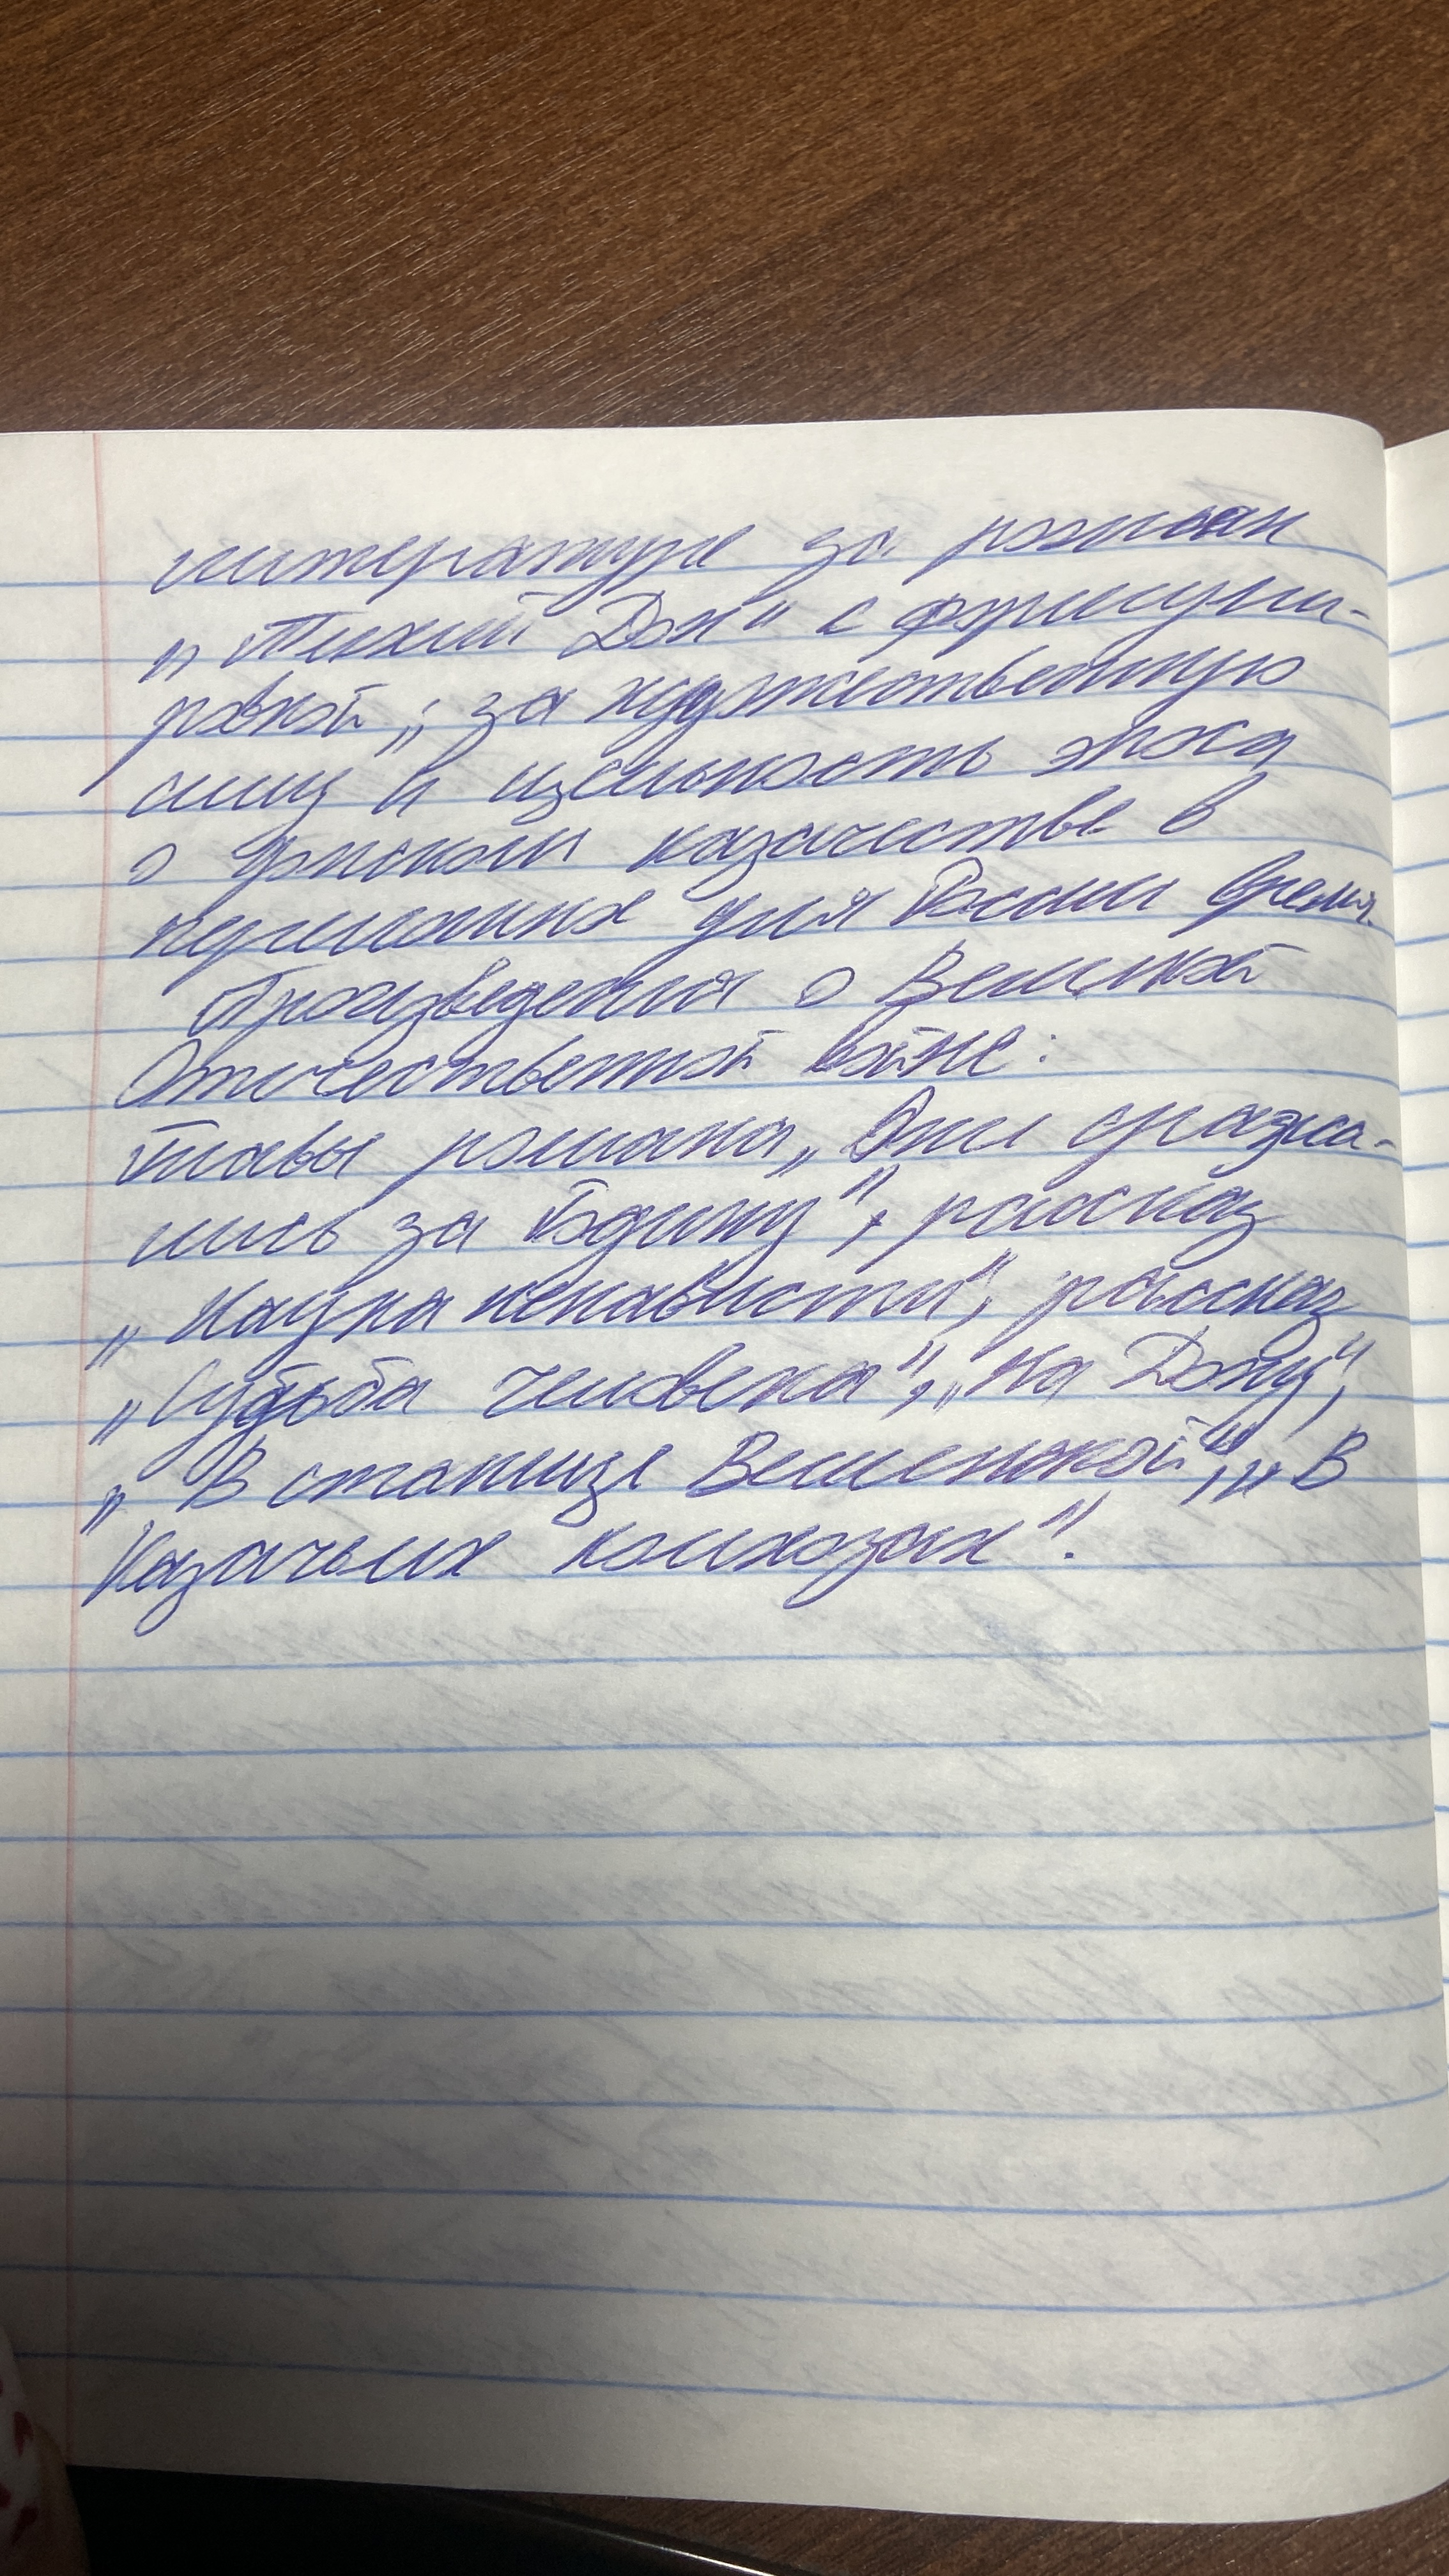 литературе за роман
„Тихий Дон" с формули-
ровкой „за художественную
силу и цельность эпоса
о донском казачестве в
переломное для России время.
Произведения о Великой
Отечественной войне:
Главы романа „Они сража-
лись за Родину", рассказ
„Наука ненависти", рассказ
„Судьба человека", „На Дону",
„В станице Вешенской", „В
казачьих колхозах".